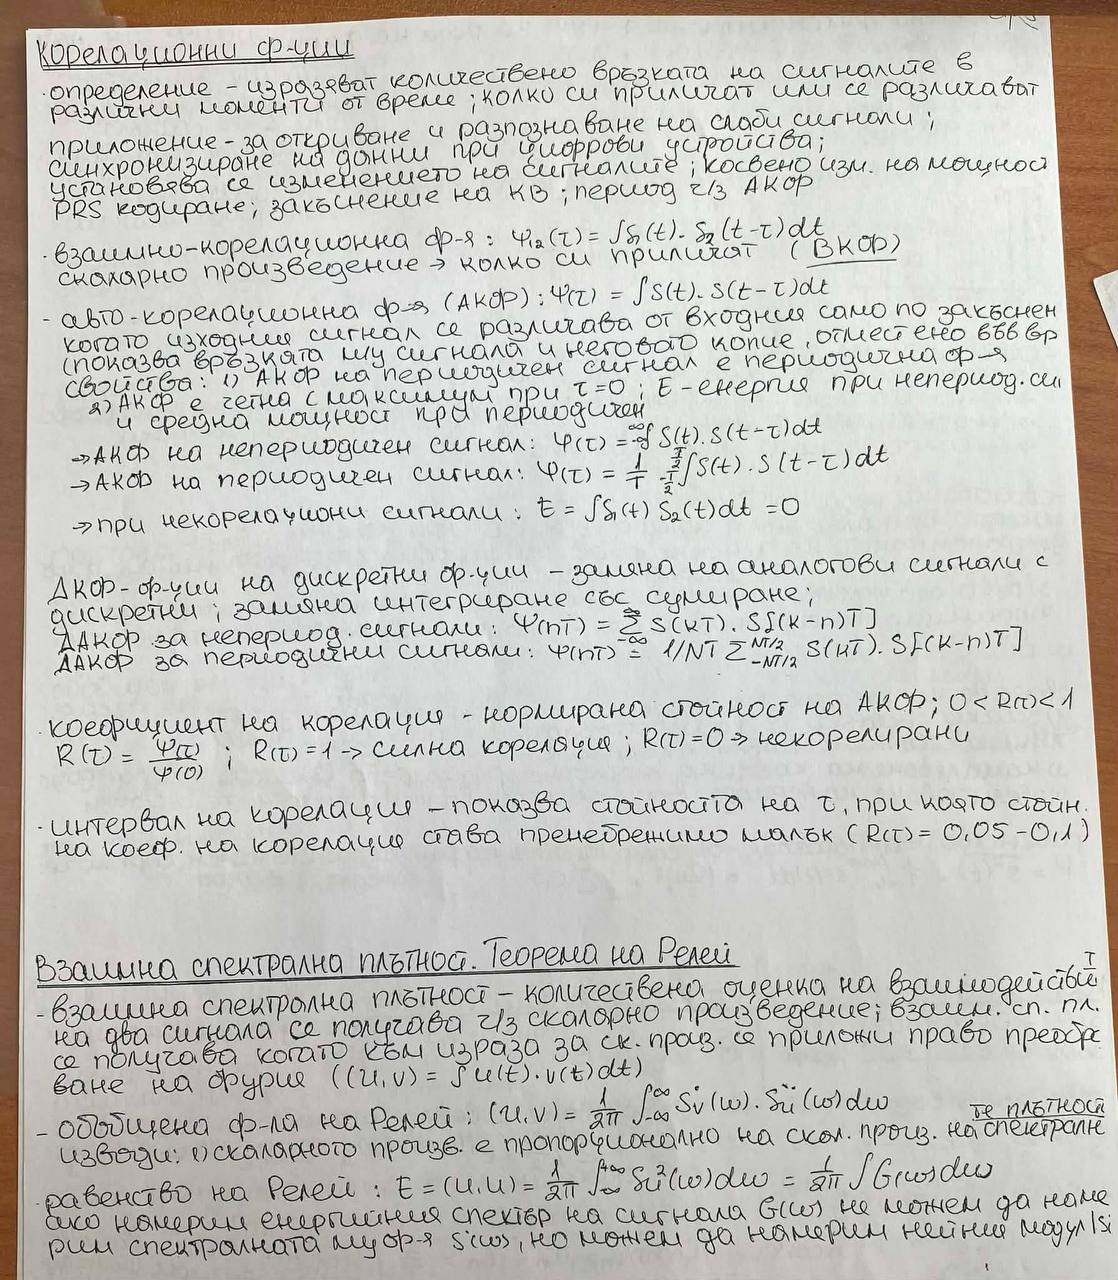 Корелационни ф-ции
· определение - изразяват количествено връзката на сигналите в
различни моменти от време; колко си приличат или се различават
приложение - за откриване и разпознаване на слаби сигнали;
синхронизиране на данни при цифрови устройства;
установява се изменението на сигналите; косвено изм. на мощност
PRS кодиране; закъснение на КВ; период ч/з АКОР
· взаимно-корелационна ф-я: Ψ₁₂(τ) = ∫S₁(t). S₂(t-τ)dt
скаларно произведение → колко си приличат (ВКОФ)
- авто-корелационна ф-я (АКОФ): Ψ(τ) = ∫S(t). S(t-τ)dt
когато изходния сигнал се различава от входния само по закъснен
(показва връзката м/у сигнала и неговото копие, отместено във вр
свойства: 1) АКОФ на периодичен сигнал е периодична ф-я
2) АКОФ е четна с максимум при τ=0; E-енергия при непериод. си
и средна мощност при периодичен
→ АКОФ на непериодичен сигнал: Ψ(τ) = ∫S(t). S(t-τ)dt
→ АКОФ на периодичен сигнал: Ψ(τ) = 1/T ∫S(t). S(t-τ)dt
→ при некорелациони сигнали: E = ∫S₁(t) S₂(t)dt = 0
ДКОР-ф-ции на дискретни ф-ции - замяна на аналогови сигнали с
дискретни; замяна интегриране със сумиране;
ДАКОР за непериод. сигнали: Ψ(nT) = Σ S(kT). S[(k-n)T]
ДАКОР за периодични сигнали: Ψ(nT) = 1/NT Σ S(kT). S[(k-n)T]
коефициент на корелация - нормирана стойност на АКОФ; 0 < R(τ) < 1
R(τ) = Ψ(τ)/Ψ(0) ; R(τ) = 1 → силна корелация; R(τ) = 0 → некорелирани
· интервал на корелация - показва стойността на τ, при която стойн.
на коеф. на корелация става пренебрежимо малък (R(τ) = 0,05-0,1)
Взаимна спектрална плътност. Теорема на Релей
- взаимна спектрална плътност - количествена оценка на взаимодействиет
на два сигнала се получава ч/з скаларно произведение; взаим. сп. пл.
се получава когато към израза за ск. произ. се приложи право преобр
ване на Фурие ((u,v) = ∫u(t).v(t)dt)
- обобщена ф-ла на Релей: (u,v) = 1/2π ∫ Sv(ω). Su(ω)dω
те плътности
изводи: 1) скаларното произв. е пропорционално на скал. произ. на спектралн
· равенство на Релей: E = (u,u) = 1/2π ∫ Su²(ω)dω = 1/2π ∫G(ω)dω
ако намерим енергийния спектър на сигнала G(ω) не можем да наме
рим спектралната му ф-я S(ω), но можем да намерим нейния модул |S